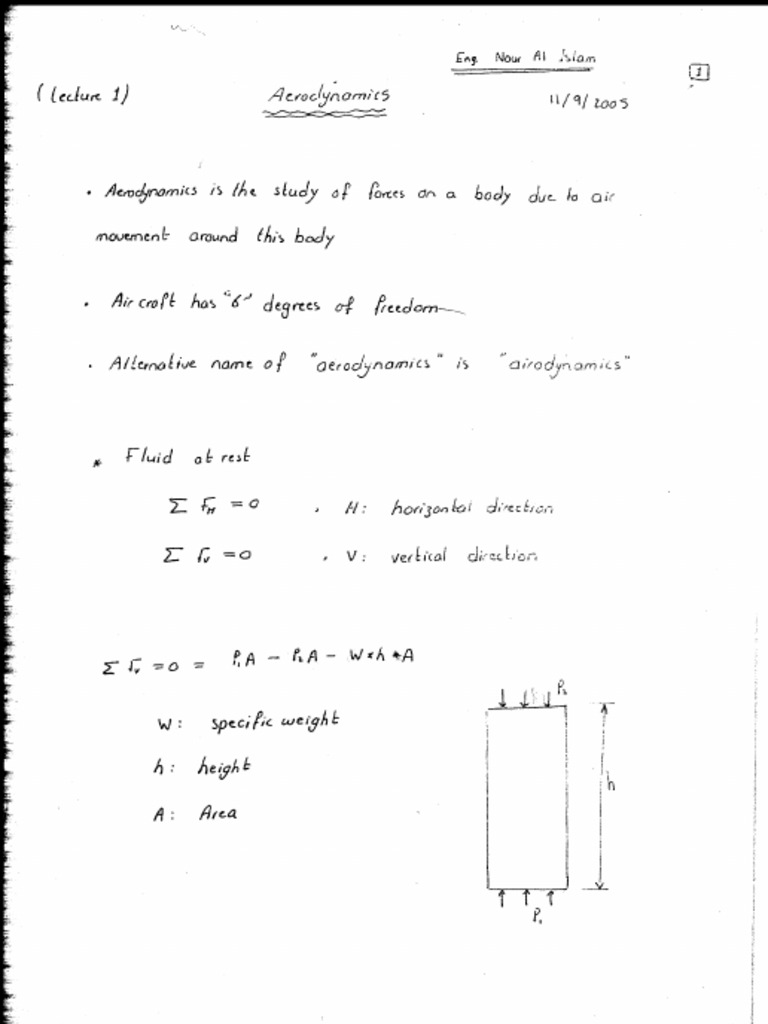 Eng. Nour Al Islam
1
(Lecture 1)
Aerodynamics
11/9/2005
. Aerodynamics is the study of forces on a body due to air
movement around this body
. Aircraft has "6" degrees of freedom
. Alternative name of "aerodynamics" is "airodynamics"
* Fluid at rest
Σ F_H = 0 . H: horizontal direction
Σ F_V = 0 . V: vertical direction
Σ F_V = 0 = P₁A - P₂A - W*h*A
W: specific weight
h: height
A: Area
P₂
h
P₁